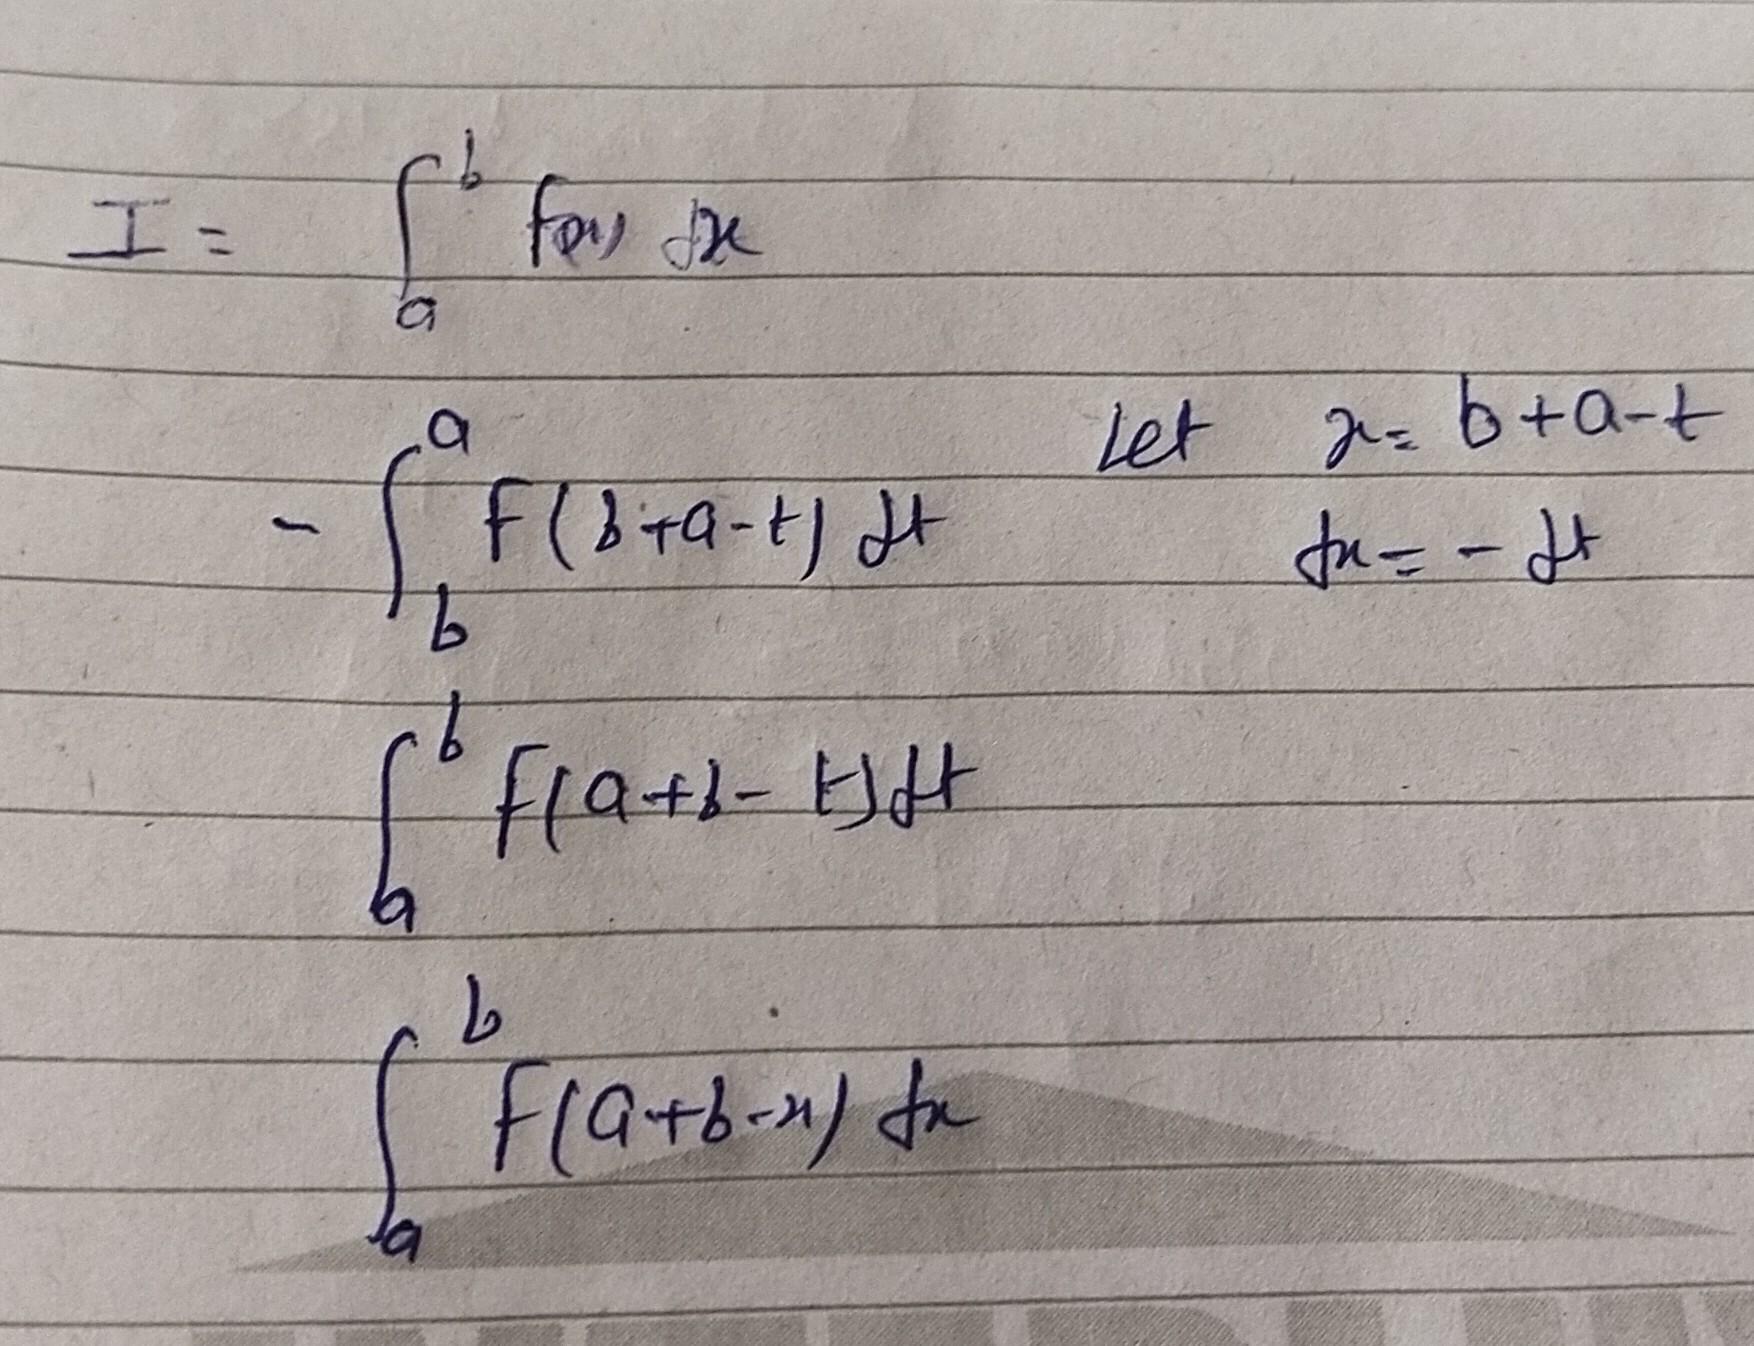 I = ∫_a^b f(x) dx
- ∫_b^a F(b+a-t) dt    Let x = b+a-t
dx = - dt
∫_a^b f(a+b-t) dt
∫_a^b F(a+b-x) dx